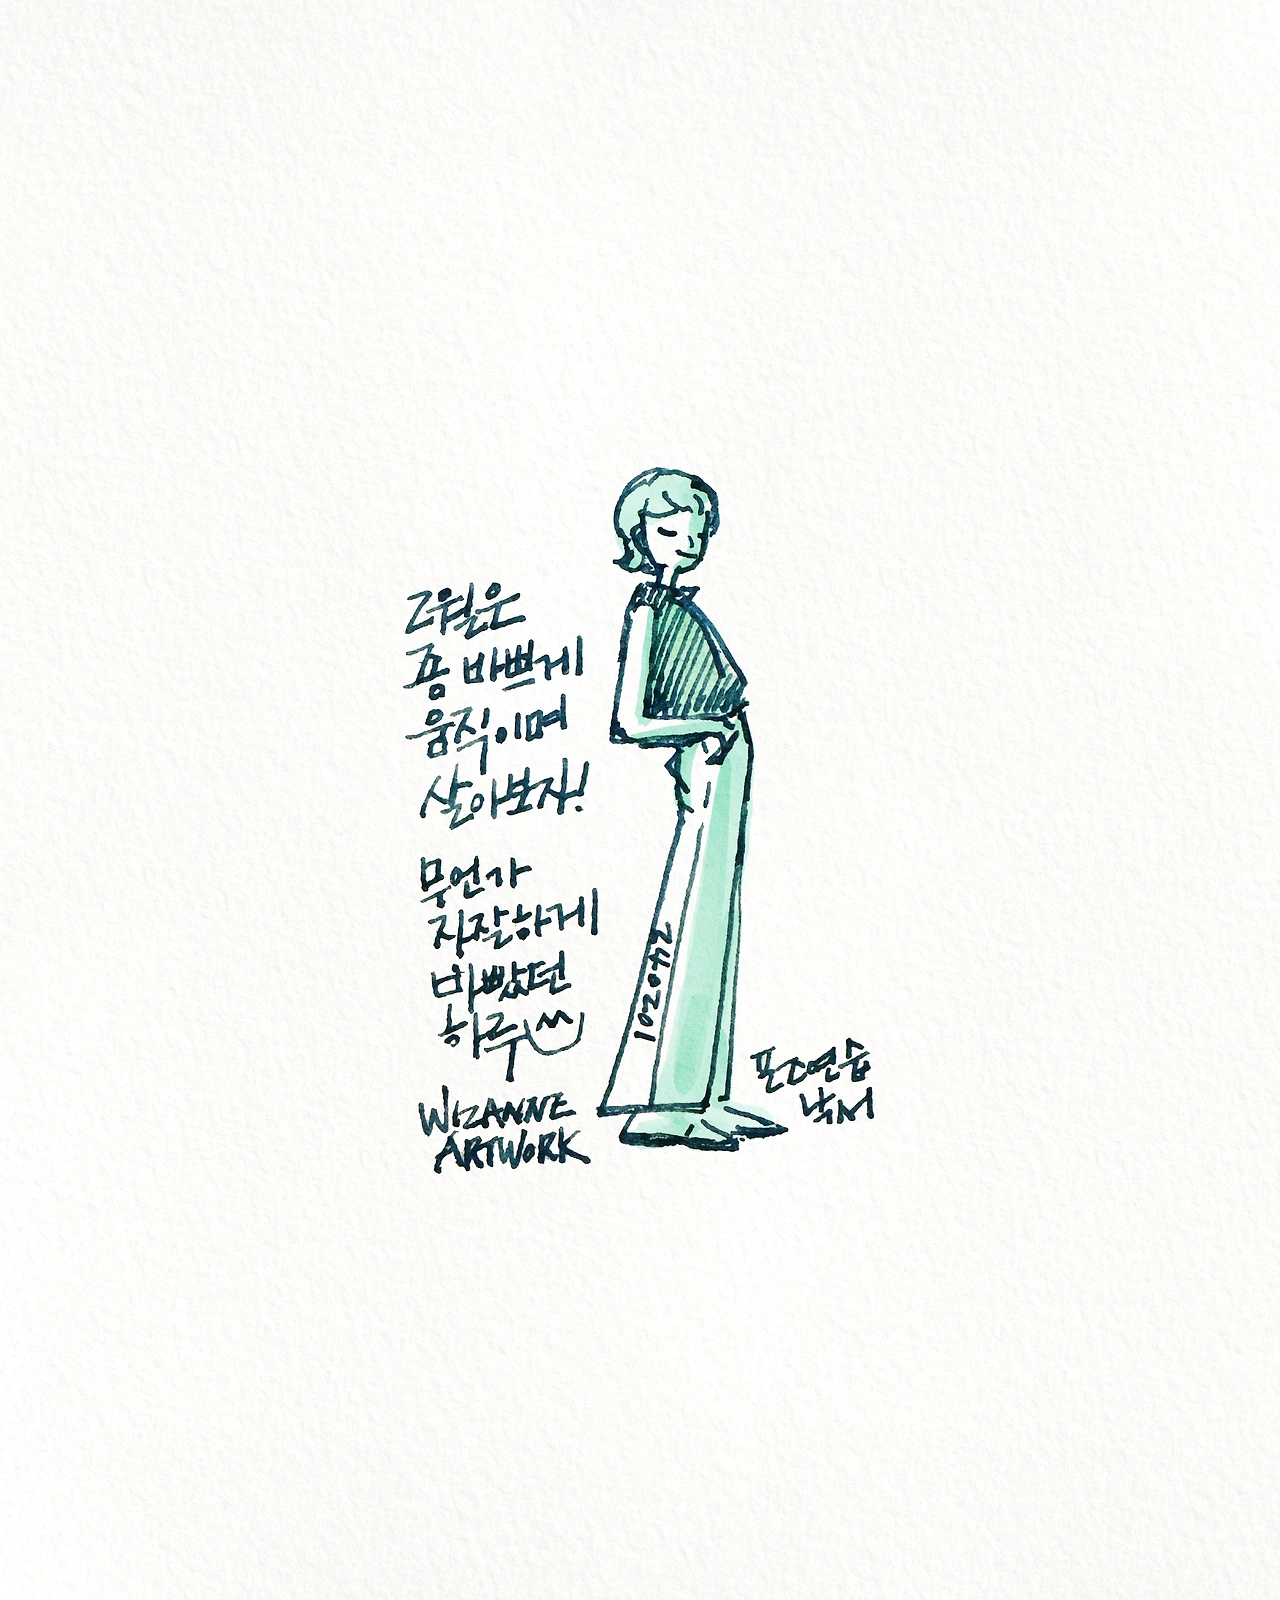 2월은
좀 바쁘게
움직이며
살아보자!
무언가
자잘하게
바빴던
하루
WIZANNE
ARTWORK
240201
포즈연습
낙서